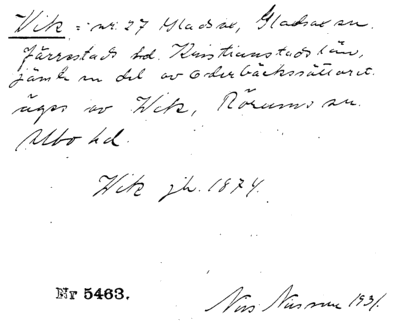 Wik = nr 27 Gladsax, Gladsax sn.
Järrestads hd. Kristianstads län,
jämte en del av Oderbäckssättaret.
äges av Wik, Rörums sn.
Albo hd.
Wik jb. 1874.
Nr 5463.
1931.